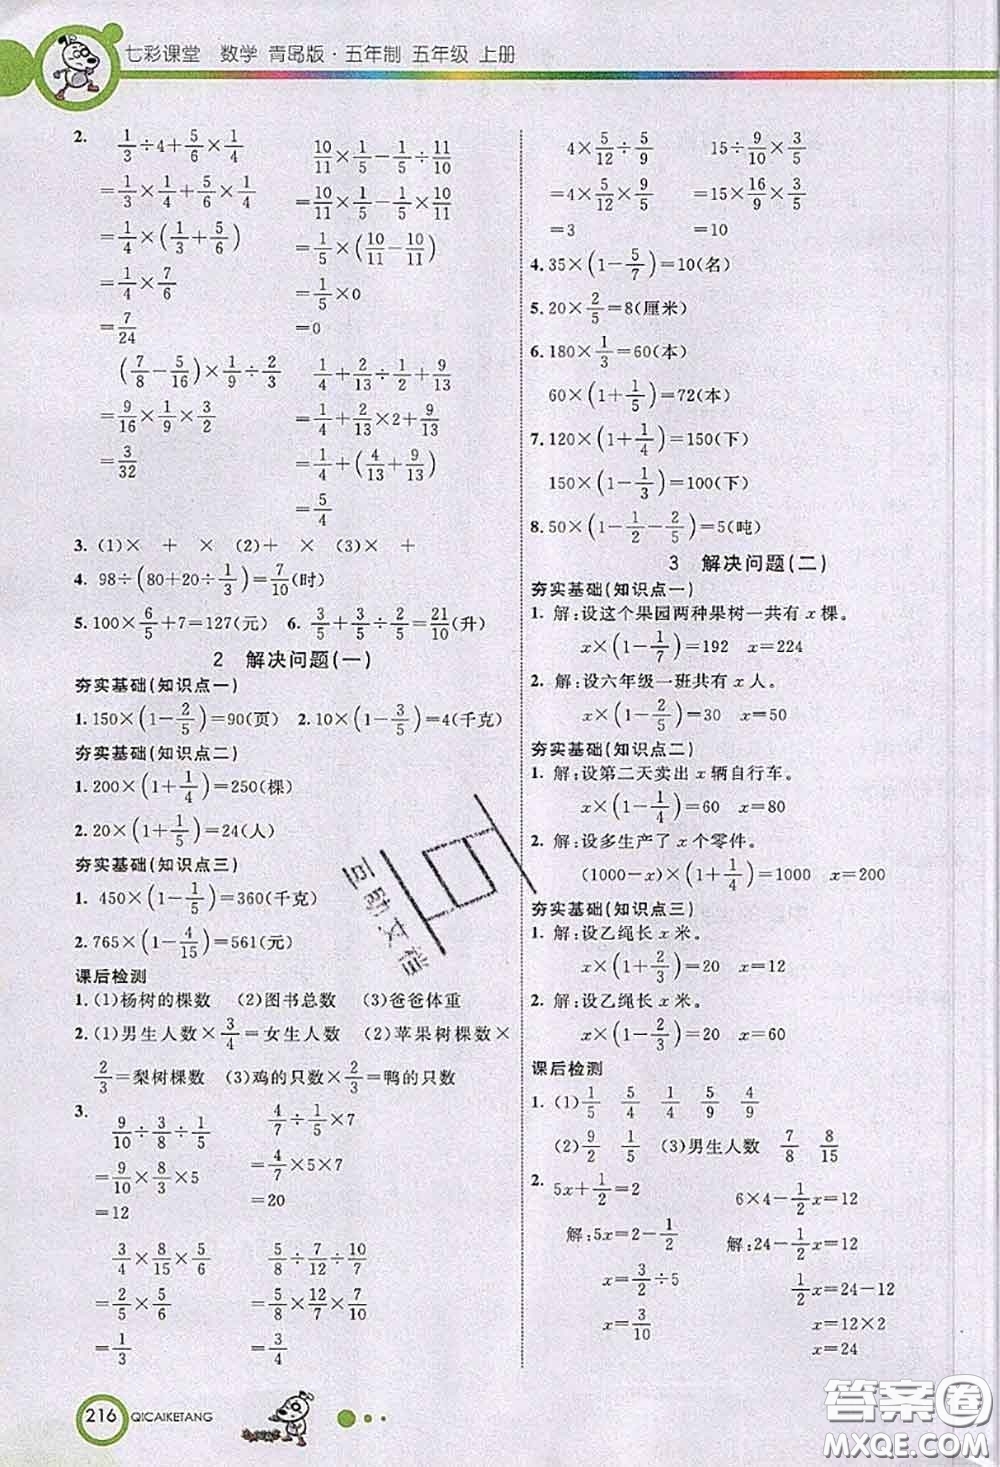 七彩课堂 数学 青岛版·五年制 五年级 上册
2. 1/3÷4+5/6×1/4
=1/3×1/4+5/6×1/4
=1/4×(1/3+5/6)
=1/4×7/6
=7/24
10/11×1/5-1/5÷11/10
=10/11×1/5-1/5×10/11
=1/5×(10/11-10/11)
=1/5×0
=0
(7/8-5/16)×1/9÷2/3
=9/16×1/9×3/2
=3/32
1/4+2/13÷1/2+9/13
=1/4+2/13×2+9/13
=1/4+(4/13+9/13)
=5/4
3. (1)× + × (2)+ × (3)× +
4. 98÷(80+20÷1/3)=7/10(时)
5. 100×6/5+7=127(元) 6. 3/5+3/5÷2/5=21/10(升)
2 解决问题(一)
夯实基础(知识点一)
1. 150×(1-2/5)=90(页) 2. 10×(1-3/5)=4(千克)
夯实基础(知识点二)
1. 200×(1+1/4)=250(棵)
2. 20×(1+1/5)=24(人)
夯实基础(知识点三)
1. 450×(1-1/5)=360(千克)
2. 765×(1-4/15)=561(元)
课后检测
1. (1)杨树的棵数 (2)图书总数 (3)爸爸体重
2. (1)男生人数×3/4=女生人数 (2)苹果树棵数×
2/3=梨树棵数 (3)鸡的只数×2/3=鸭的只数
3. 9/10÷3/8÷1/5
=9/10×8/3×5
=12
4/7÷1/5×7
=4/7×5×7
=20
3/4×8/15×5/6
=2/5×5/6
=1/3
5/8÷7/12÷10/7
=5/8×12/7×7/10
=3/4
4×5/12÷5/9
=4×5/12×9/5
=3
15÷9/10×3/5
=15×16/9×3/5
=10
4. 35×(1-5/7)=10(名)
5. 20×2/5=8(厘米)
6. 180×1/3=60(本)
60×(1+1/5)=72(本)
7. 120×(1+1/4)=150(下)
150×(1-1/3)=100(下)
8. 50×(1-1/2-2/5)=5(吨)
3 解决问题(二)
夯实基础(知识点一)
1. 解:设这个果园两种果树一共有 x 棵。
x×(1-1/7)=192 x=224
2. 解:设六年级一班共有 x 人。
x×(1-2/5)=30 x=50
夯实基础(知识点二)
1. 解:设第二天卖出 x 辆自行车。
x×(1-1/4)=60 x=80
2. 解:设多生产了 x 个零件。
(1000-x)×(1+1/4)=1000 x=200
夯实基础(知识点三)
1. 解:设乙绳长 x 米。
x×(1+2/3)=20 x=12
2. 解:设乙绳长 x 米。
x×(1-2/3)=20 x=60
课后检测
1. (1)1/5 5/4 1/4 5/9 4/9
(2)9/2 1/5 (3)男生人数 7/8 8/15
2. 5x+1/2=2
解:5x=2-1/2
x=3/2÷5
x=3/10
6×4-1/2x=12
解:24-1/2x=12
1/2x=24-12
x=12×2
x=24
216 QICAIKETANG
互助文档
答案圈
MXQE.COM